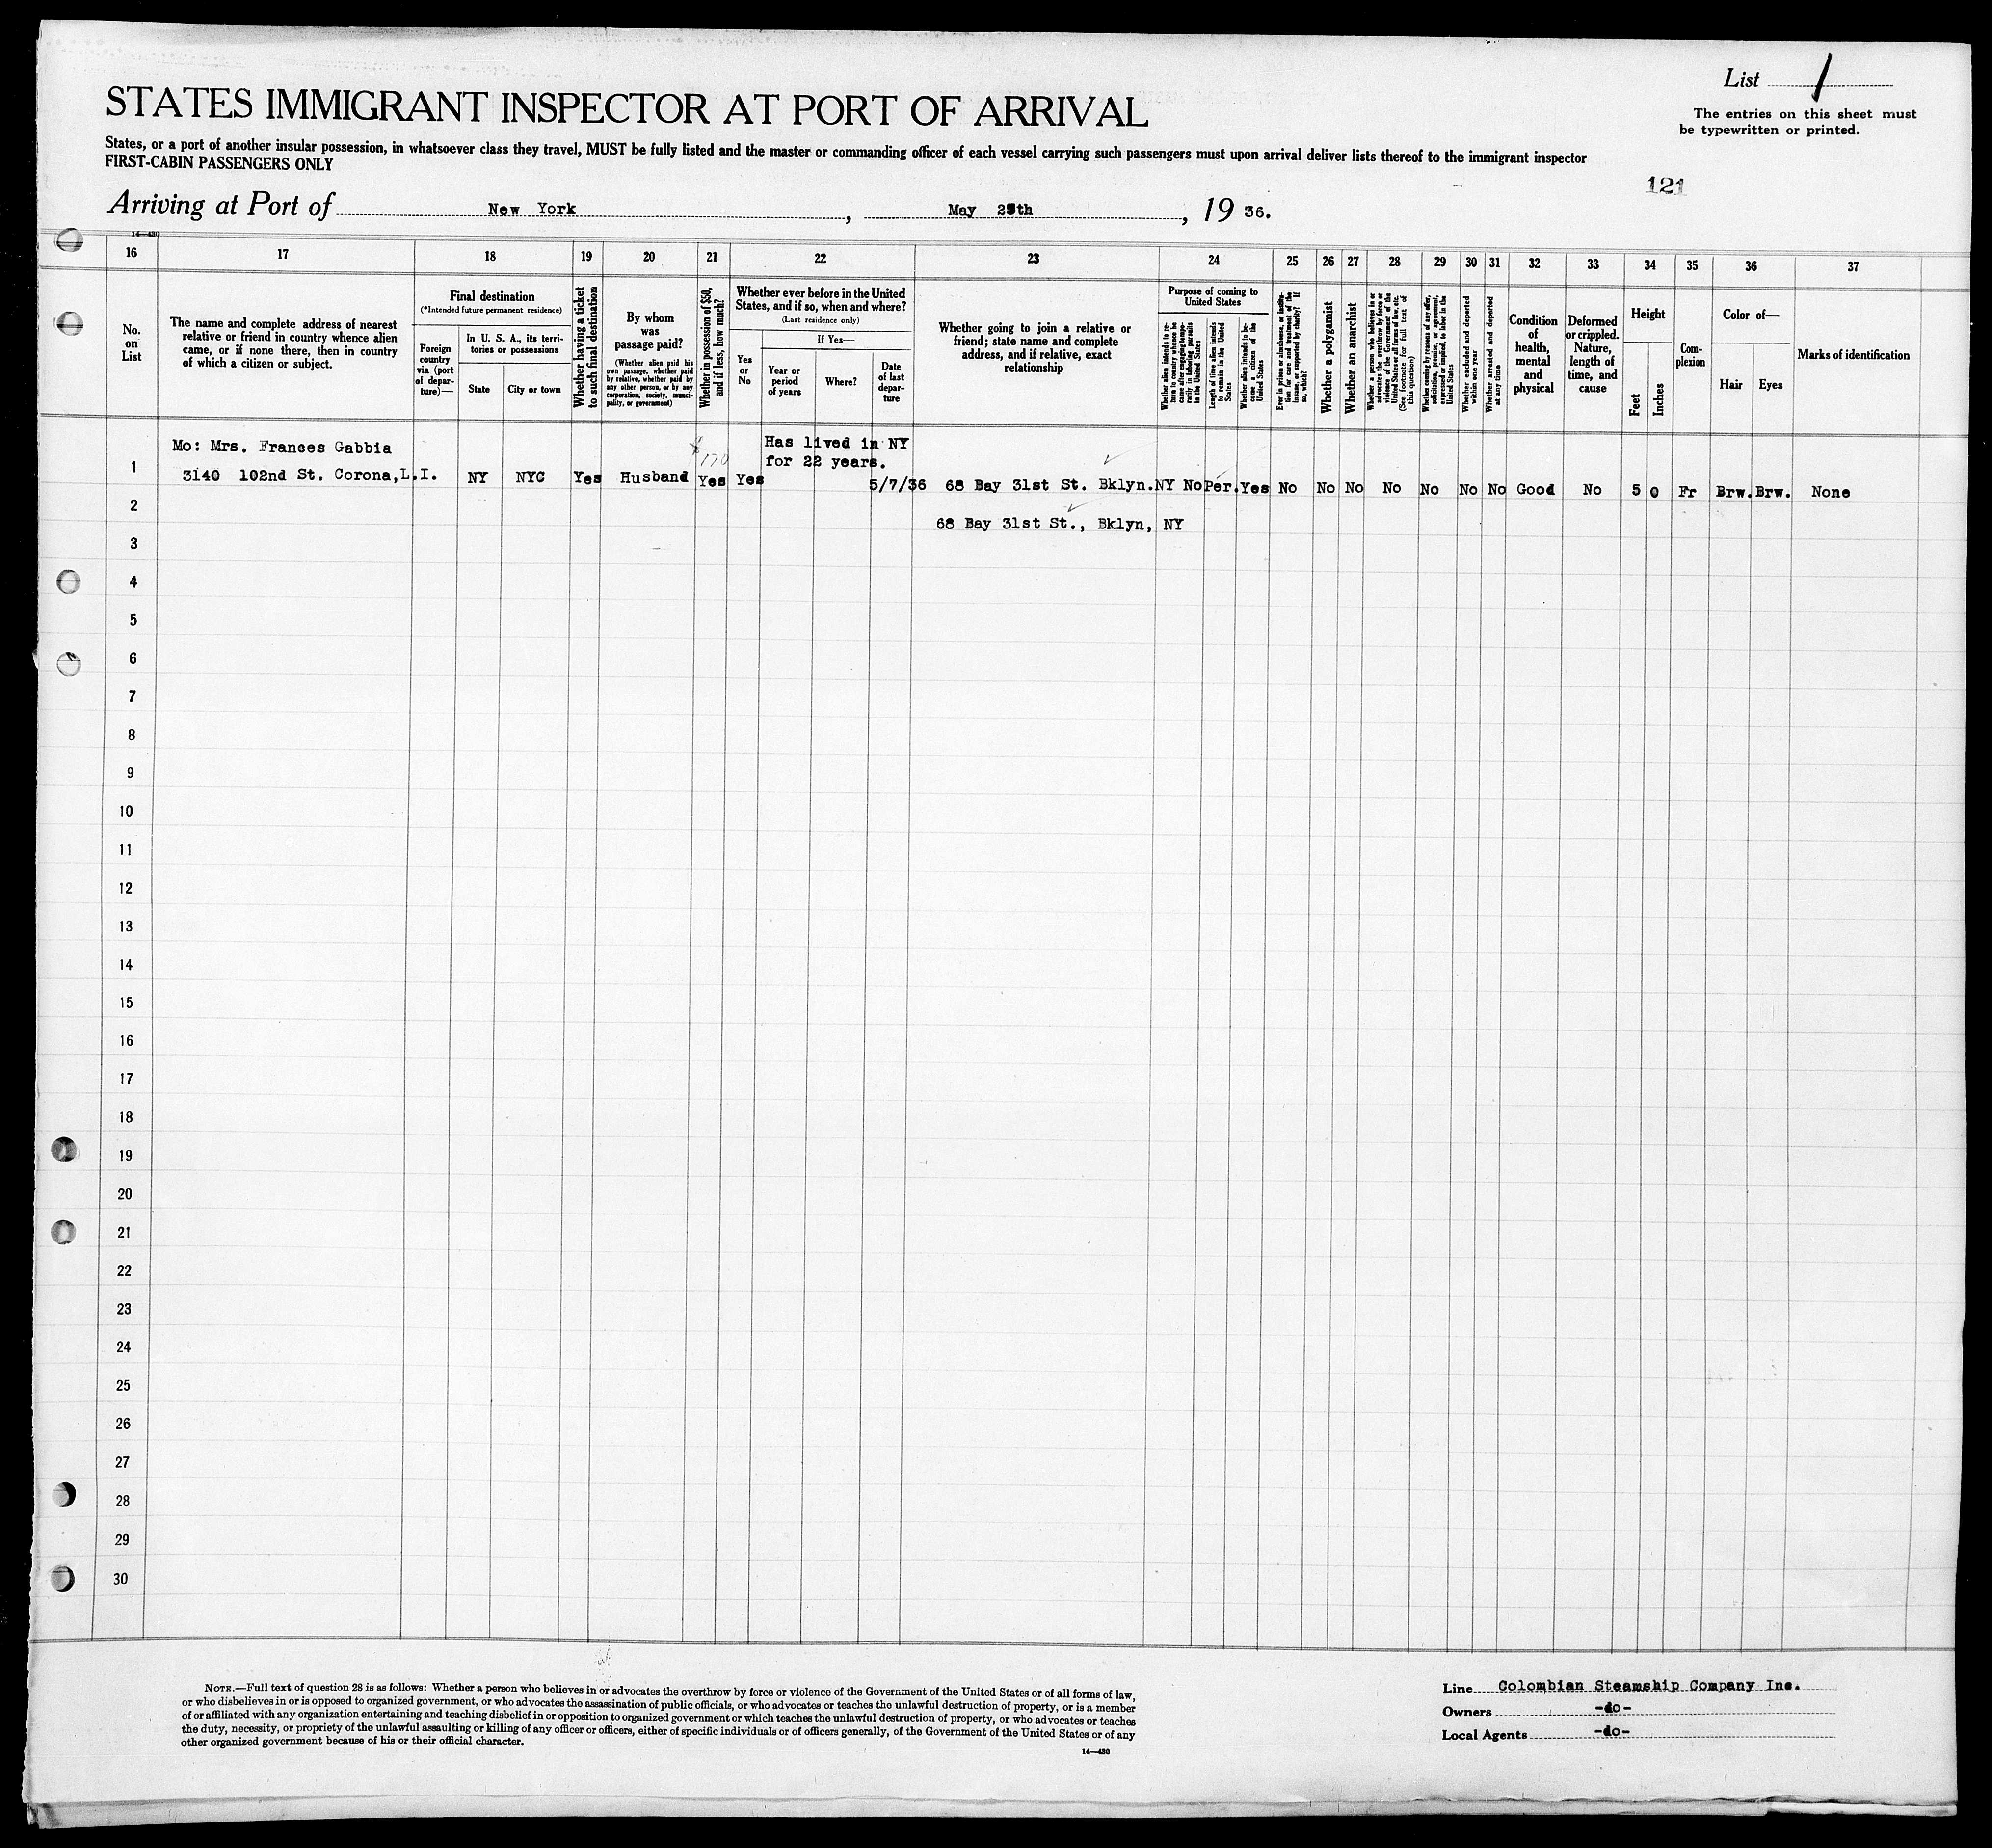 List /
STATES IMMIGRANT INSPECTOR AT PORT OF ARRIVAL
The entries on this sheet must
be typewritten or printed.
States, or a port of another insular possession, in whatsoever class they travel, MUST be fully listed and the master or commanding officer of each vessel carrying such passengers must upon arrival deliver lists thereof to the immigrant inspector
FIRST-CABIN PASSENGERS ONLY
121
Arriving at Port of New York, May 25th, 19 36.
14—430
16 17 18 19 20 21 22 23 24 25 26 27 28 29 30 31 32 33 34 35 36 37
No.
on
List
The name and complete address of nearest
relative or friend in country whence alien
came, or if none there, then in country
of which a citizen or subject.
Final destination
(*Intended future permanent residence)
Foreign
country
via (port
of depar-
ture)—
In U. S. A., its terri-
tories or possessions
State
City or town
Whether having a ticket
to such final destination
By whom
was
passage paid?
(Whether alien paid his
own passage, whether paid
by relative, whether paid by
any other person, or by any
corporation, society, munici-
pality, or government)
Whether in possession of $50,
and if less, how much?
Whether ever before in the United
States, and if so, when and where?
(Last residence only)
Yes
or
No
If Yes—
Year or
period
of years
Where?
Date
of last
depar-
ture
Whether going to join a relative or
friend; state name and complete
address, and if relative, exact
relationship
Purpose of coming to
United States
Whether alien intends to re-
turn to country whence he
came after engaging tempo-
rarily in laboring pursuits
in the United States
Length of time alien intends
to remain in the United
States
Whether alien intends to be-
come a citizen of the
United States
Ever in prison or almshouse, or institu-
tion for care and treatment of the
insane, or supported by charity? If
so, which?
Whether a polygamist
Whether an anarchist
Whether a person who believes in or
advocates the overthrow by force or
violence of the Government of the
United States or all forms of law, etc.
(See footnote for full text of
this question)
Whether coming by reasons of any offer,
solicitation, promise, or agreement,
expressed or implied, to labor in the
United States
Whether excluded and deported
within one year
Whether arrested and deported
at any time
Condition
of
health,
mental
and
physical
Deformed
or crippled.
Nature,
length of
time, and
cause
Height
Feet
Inches
Com-
plexion
Color of—
Hair
Eyes
Marks of identification
Mo: Mrs. Frances Gabbia
Has lived in NY
$170
for 22 years.
1 3140 102nd St. Corona,L.I. NY NYC Yes Husband Yes Yes 5/7/36 68 Bay 31st St. Bklyn.NY No Per. Yes No No No No No No No Good No 5 0 Fr Brw. Brw. None
2
68 Bay 31st St., Bklyn, NY
3
4
5
6
7
8
9
10
11
12
13
14
15
16
17
18
19
20
21
22
23
24
25
26
27
28
29
30
NOTE.—Full text of question 28 is as follows: Whether a person who believes in or advocates the overthrow by force or violence of the Government of the United States or of all forms of law,
or who disbelieves in or is opposed to organized government, or who advocates the assassination of public officials, or who advocates or teaches the unlawful destruction of property, or is a member
of or affiliated with any organization entertaining and teaching disbelief in or opposition to organized government or which teaches the unlawful destruction of property, or who advocates or teaches
the duty, necessity, or propriety of the unlawful assaulting or killing of any officer or officers, either of specific individuals or of officers generally, of the Government of the United States or of any
other organized government because of his or their official character.
14—430
Line Colombian Steamship Company Inc.
Owners -do-
Local Agents -do-